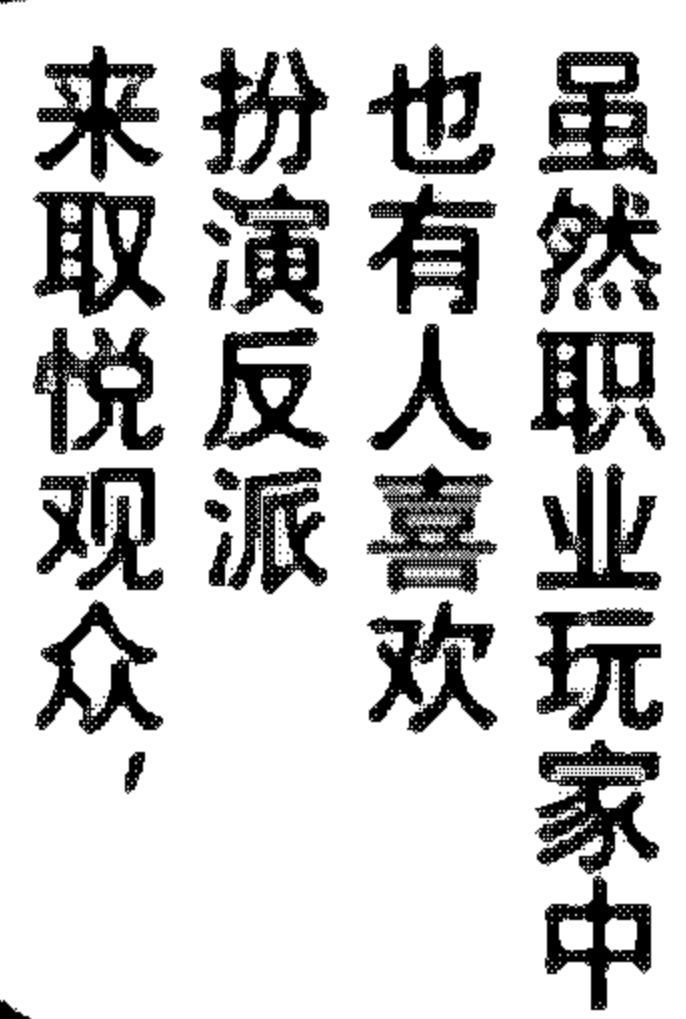 虽然职业玩家中
也有人喜欢
扮演反派
来取悦观众，